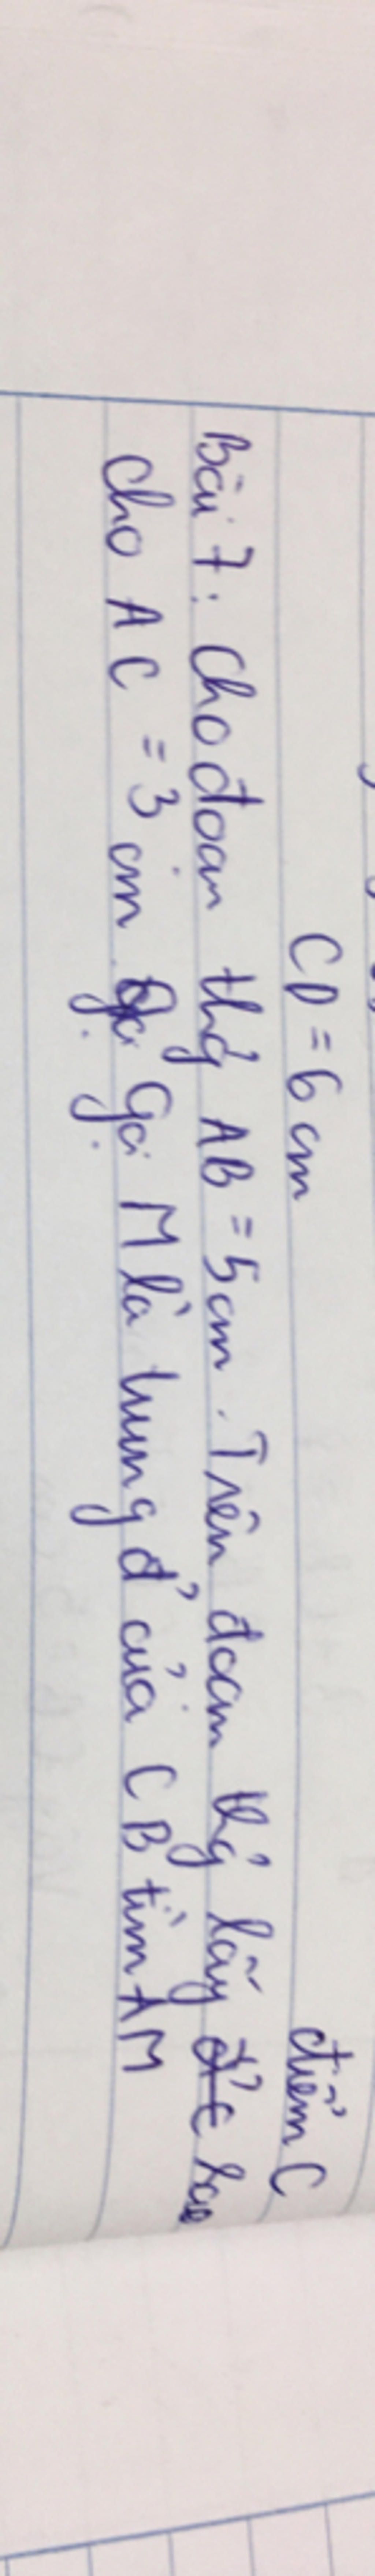 CD = 6 cm
điểm C
Bài 7: Cho đoạn thg̉ AB = 5cm. Trên đoạn thg̉ lấy đ̉ C sao
cho AC = 3 cm Gọi M là trung đ̉ của CB tìm AM